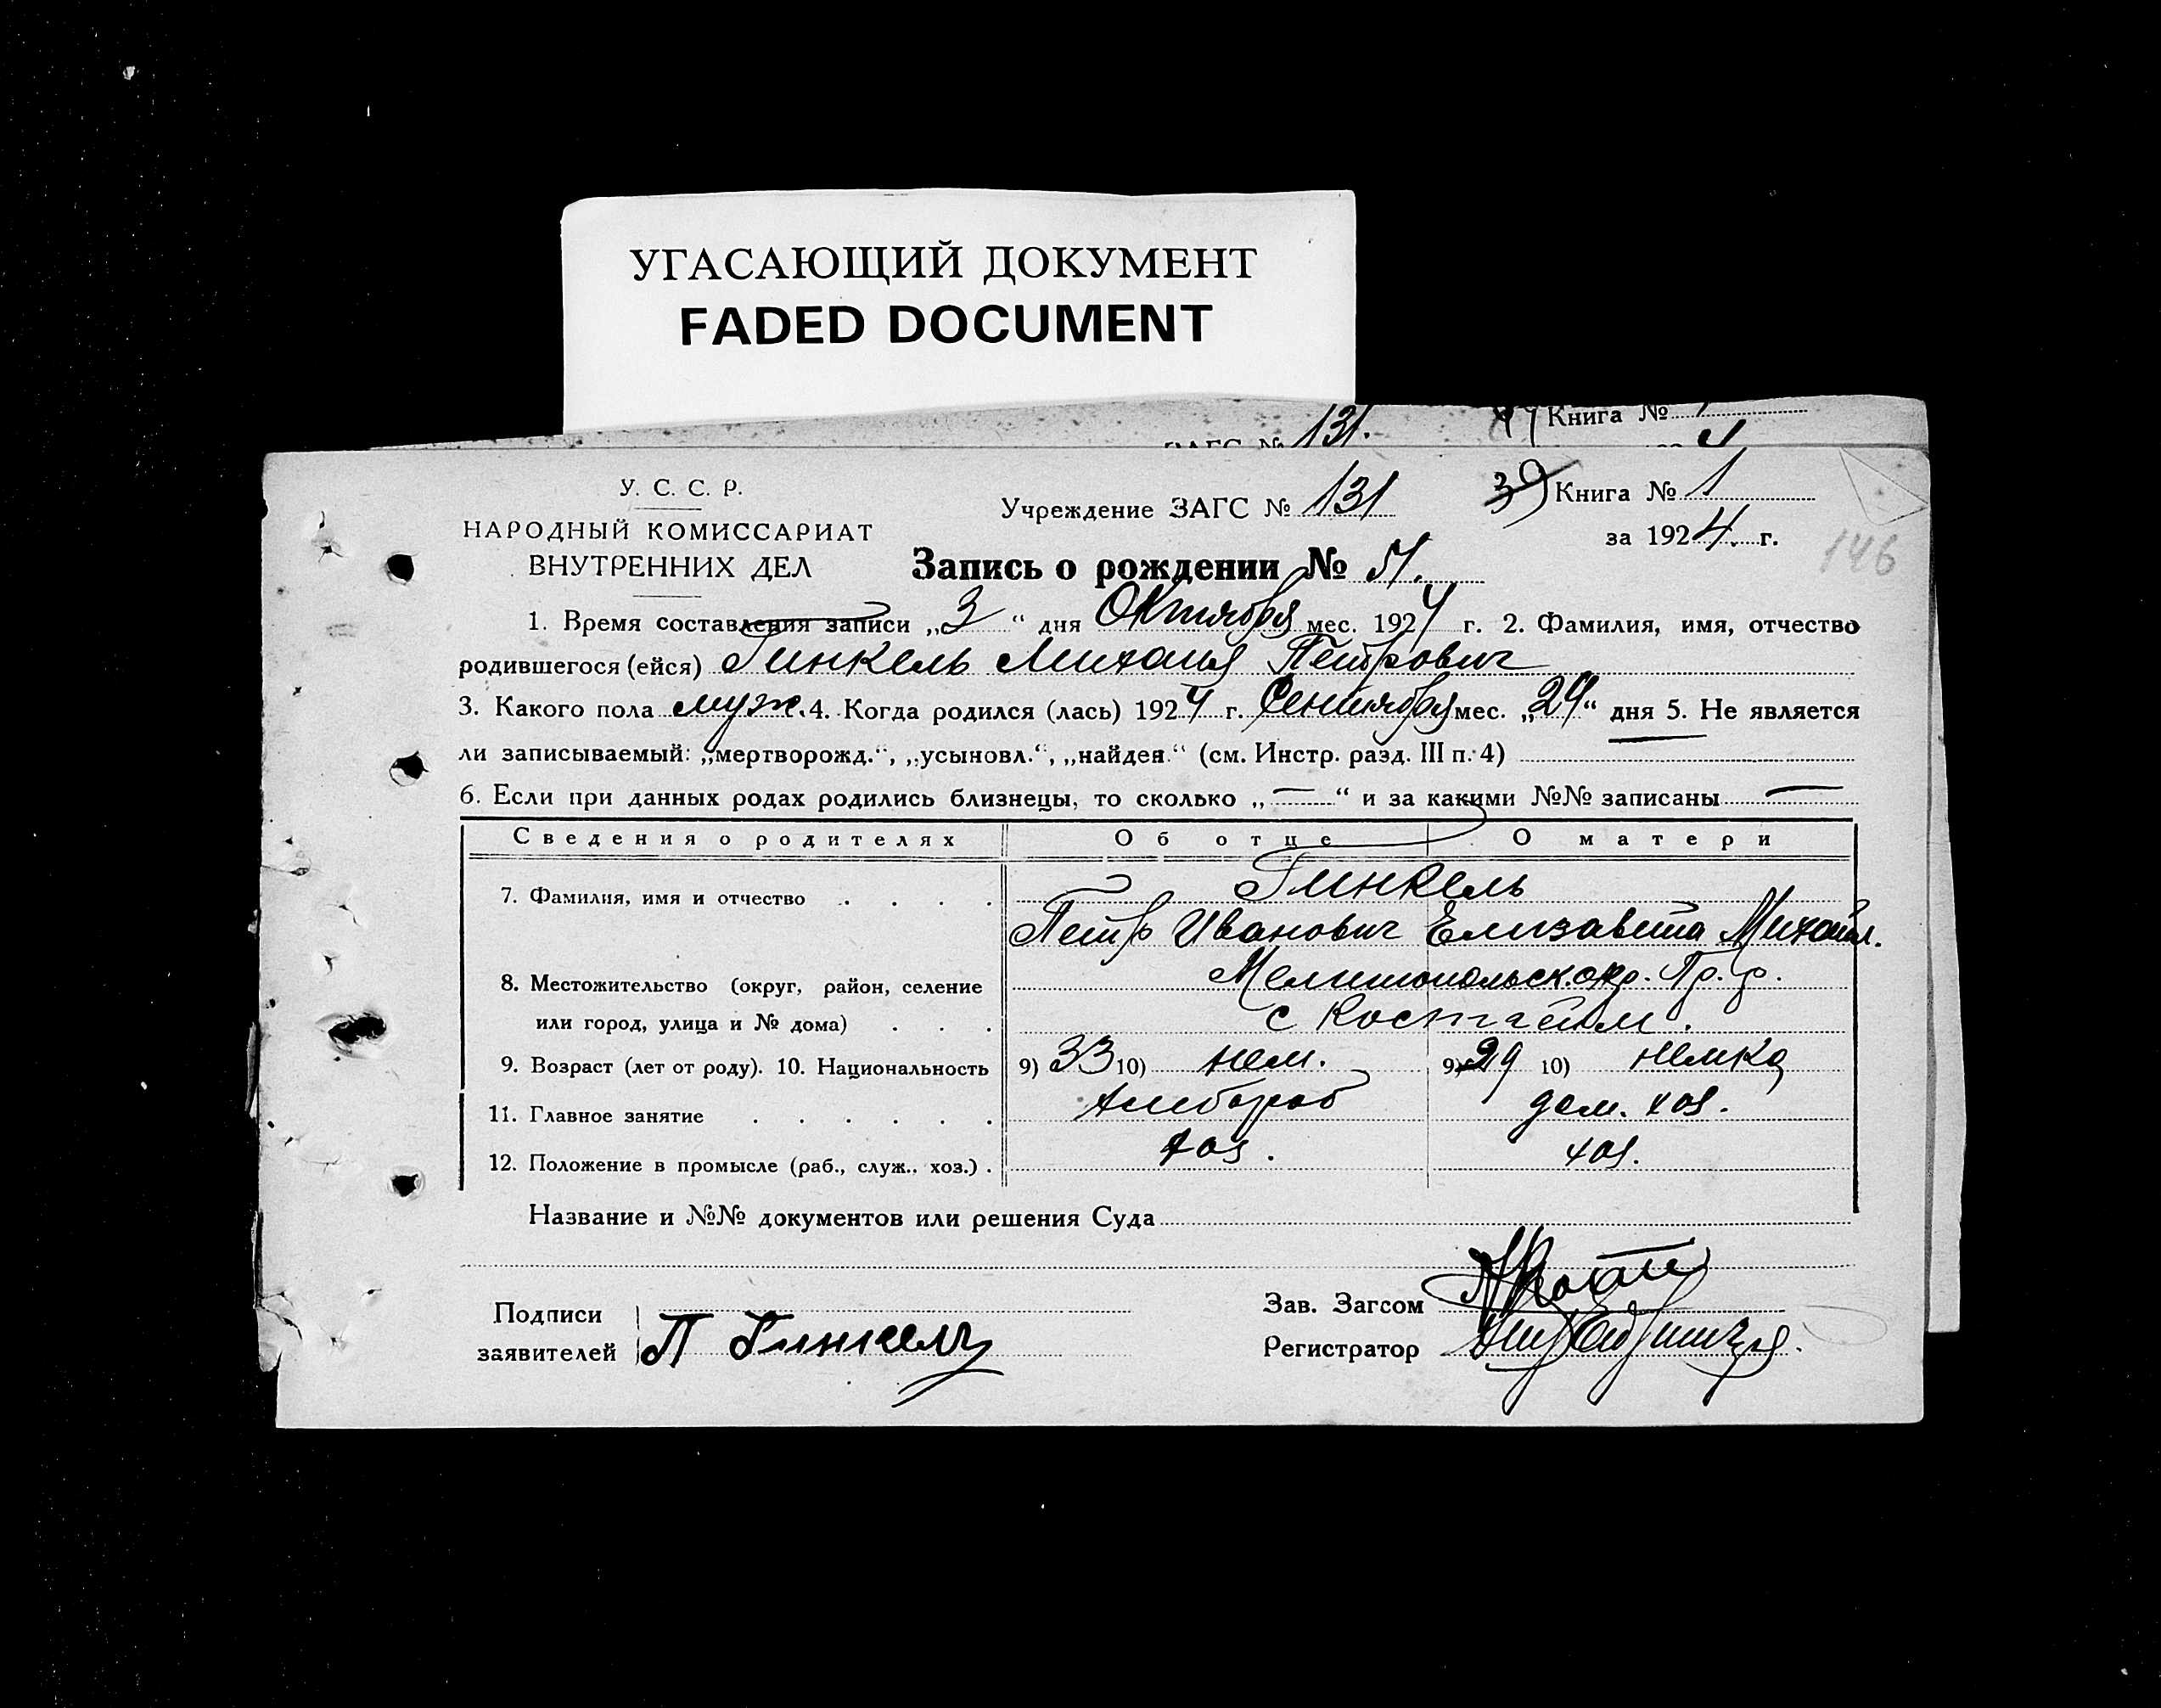 УГАСАЮЩИЙ ДОКУМЕНТ
FADED DOCUMENT
131.
Книга №
У. С. С. Р.
НАРОДНЫЙ КОМИССАРИАТ
ВНУТРЕННИХ ДЕЛ
Учреждение ЗАГС № 131
39 Книга № 1
за 1924. г.
146
Запись о рождении № 51.
1. Время составления записи „3“ дня Октября мес. 1924 г. 2. Фамилия, имя, отчество
родившегося (ейся) Гинкель Михаил Петрович
3. Какого пола муж. 4. Когда родился (лась) 1924 г. Сентября мес. „24“ дня 5. Не является
ли записываемый: „мертворожд.“, „усыновл.“, „найден.“ (см. Инстр. разд. III п. 4)
6. Если при данных родах родились близнецы, то сколько „—“ и за какими №№ записаны —
Сведения о родителях Об отце О матери
7. Фамилия, имя и отчество . . . . Гинкель
Петр Иванович Елизавета Михайл.
8. Местожительство (округ, район, селение Мелитопольск. окр. Пр. р.
или город, улица и № дома) . . . с Костгейм.
9. Возраст (лет от роду). 10. Национальность 9) 33 10) нем. 9) 29 10) немка
11. Главное занятие . . . . . . хлебороб дом. хоз.
12. Положение в промысле (раб., служ., хоз.) . хоз. хоз.
Название и №№ документов или решения Суда
Подписи
заявителей П Гинкель
Зав. Загсом
Регистратор